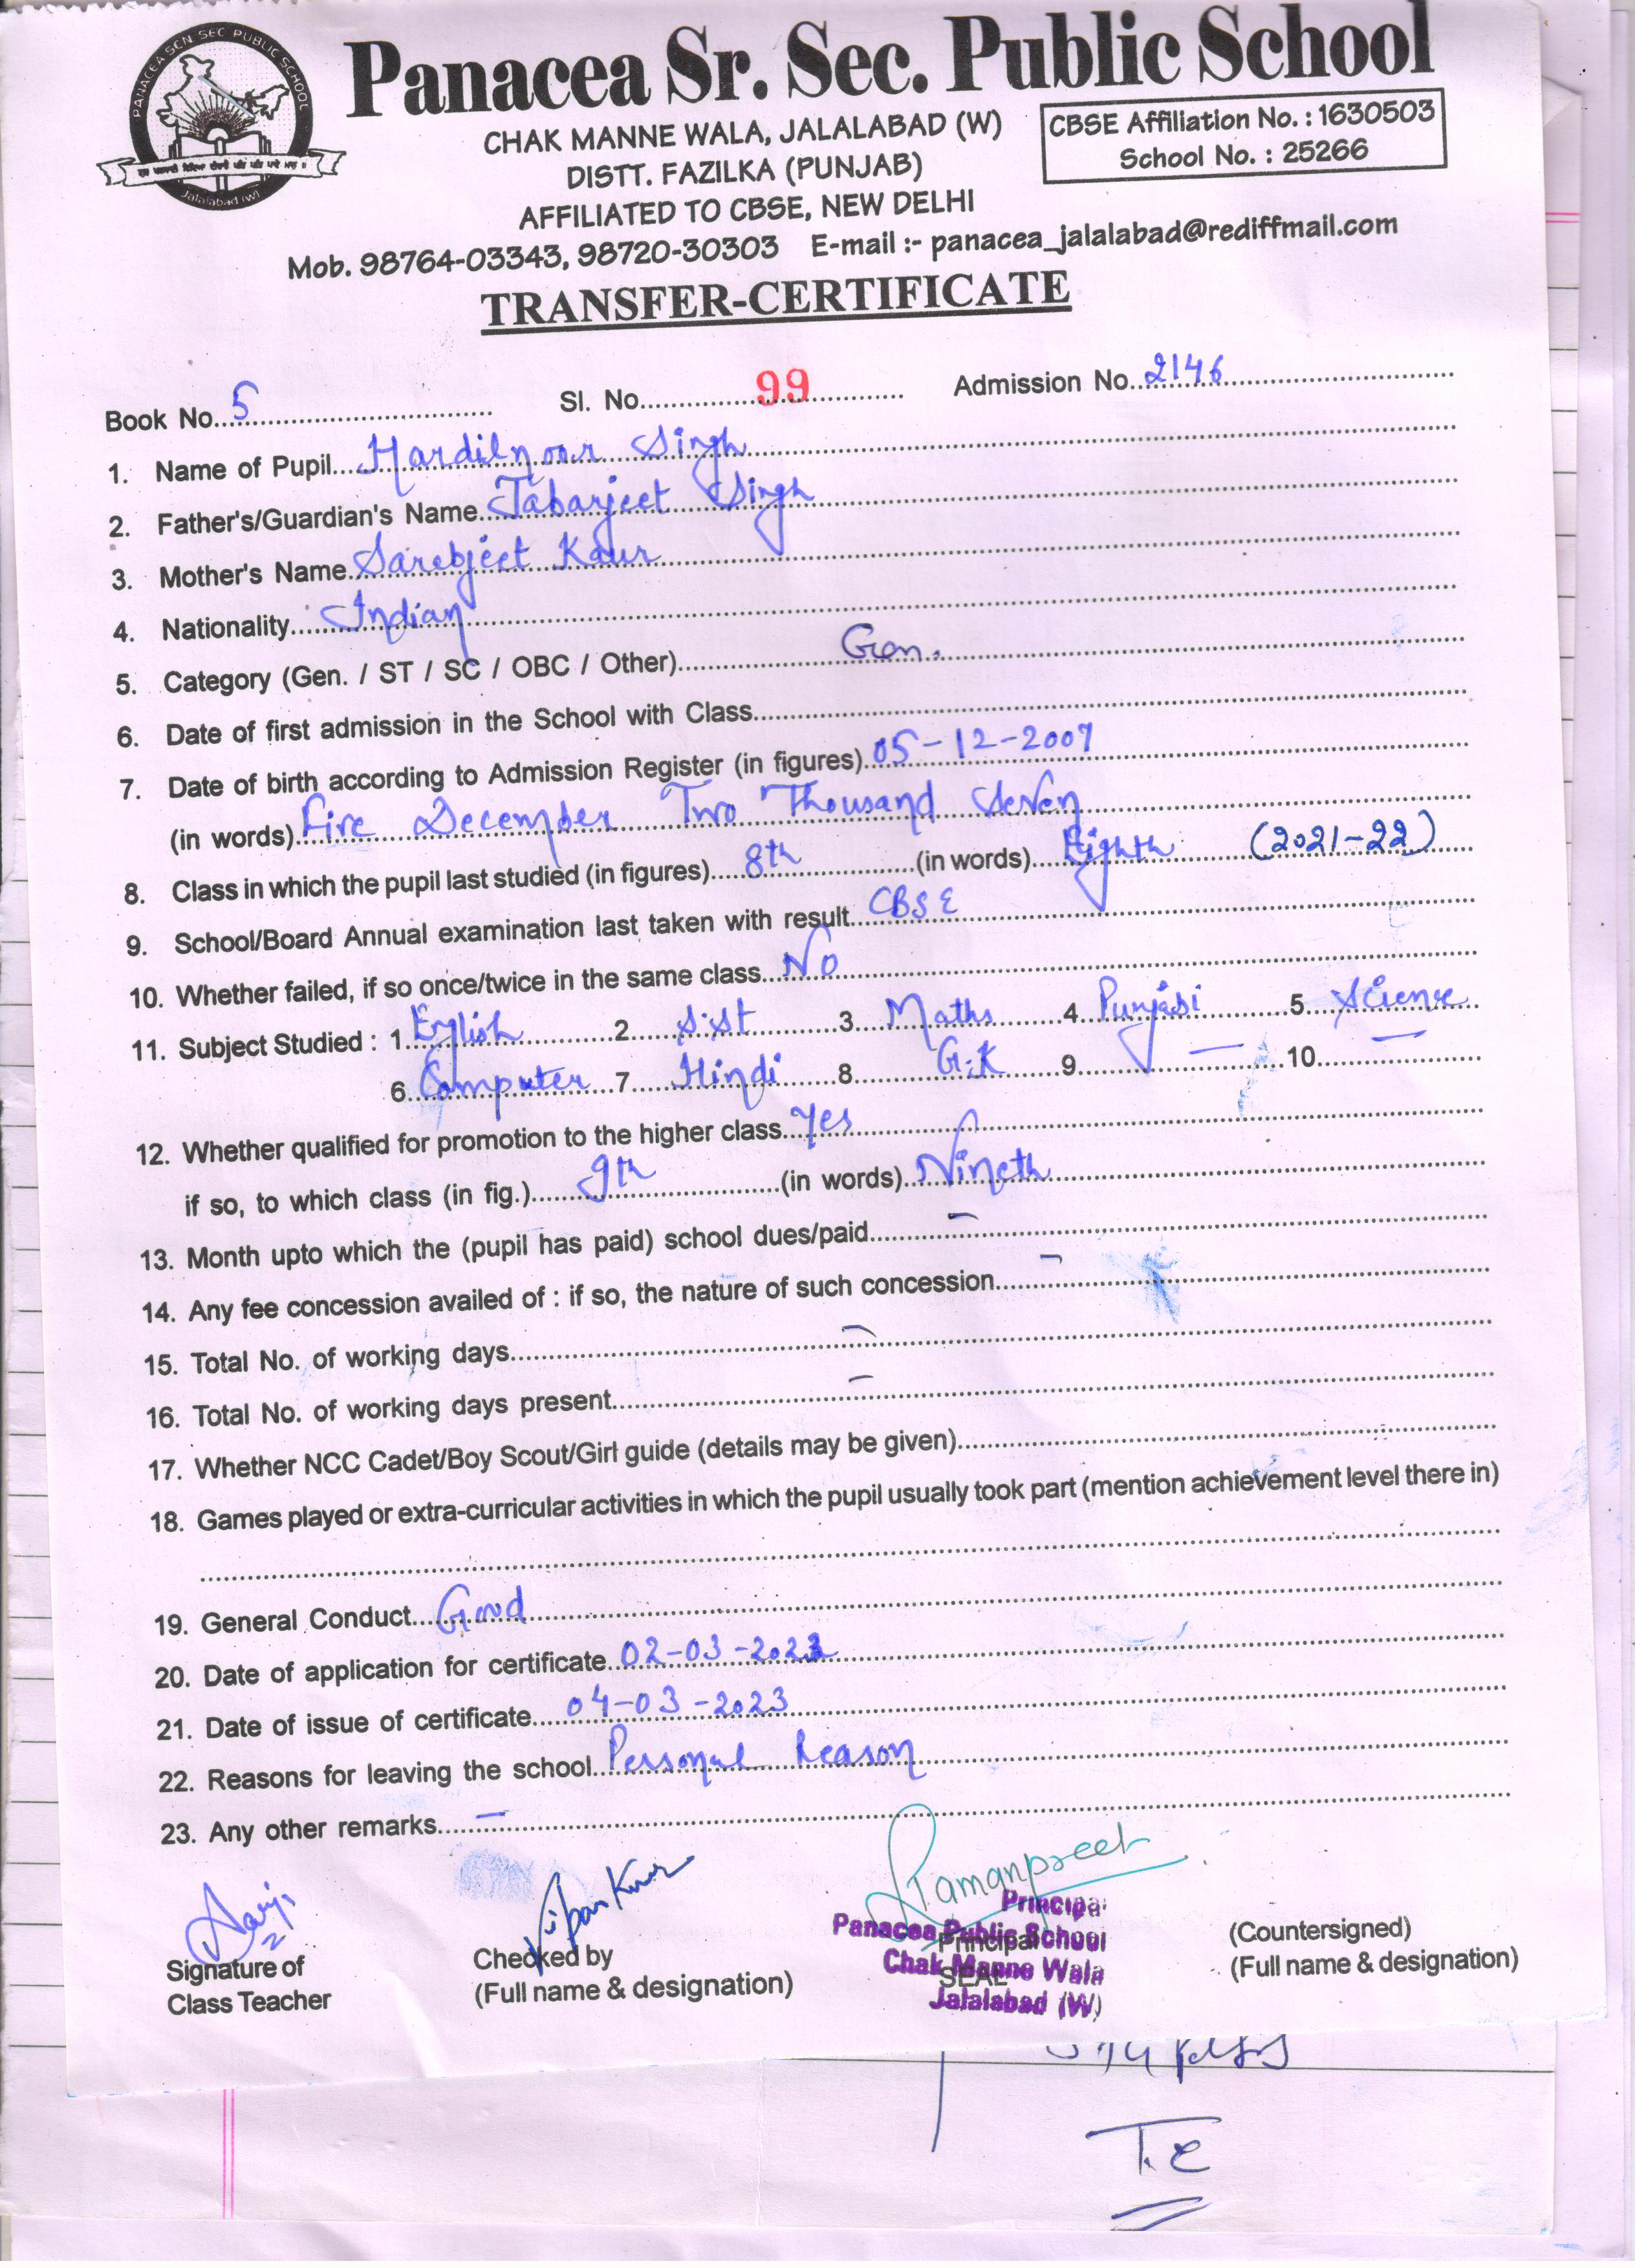 PANACEA SCN SEC PUBLIC SCHOOL
Jalalabad (W)
Panacea Sr. Sec. Public School
CHAK MANNE WALA, JALALABAD (W)
CBSE Affiliation No. : 1630503
School No. : 25266
DISTT. FAZILKA (PUNJAB)
AFFILIATED TO CBSE, NEW DELHI
Mob. 98764-03343, 98720-30303 E-mail :- panacea_jalalabad@rediffmail.com
TRANSFER-CERTIFICATE
Book No. 5 Sl. No. 99 Admission No. 2146
1. Name of Pupil Hardilnoor Singh
2. Father's/Guardian's Name Jabarjeet Singh
3. Mother's Name Sarebjeet Kaur
4. Nationality Indian
5. Category (Gen. / ST / SC / OBC / Other) Gen.
6. Date of first admission in the School with Class
7. Date of birth according to Admission Register (in figures) 05-12-2007
(in words) Five December Two Thousand Seven
8. Class in which the pupil last studied (in figures) 8th (in words) Eighth (2021-22)
9. School/Board Annual examination last taken with result CBSE
10. Whether failed, if so once/twice in the same class No
11. Subject Studied : 1. English 2. S.St 3. Maths 4. Punjabi 5. Science
6. Computer 7. Hindi 8. G.K 9. — 10. —
12. Whether qualified for promotion to the higher class Yes
if so, to which class (in fig.) 9th (in words) Nineth
13. Month upto which the (pupil has paid) school dues/paid –
14. Any fee concession availed of : if so, the nature of such concession –
15. Total No. of working days –
16. Total No. of working days present –
17. Whether NCC Cadet/Boy Scout/Girl guide (details may be given)
18. Games played or extra-curricular activities in which the pupil usually took part (mention achievement level there in)
19. General Conduct Good
20. Date of application for certificate 02-03-2023
21. Date of issue of certificate 04-03-2023
22. Reasons for leaving the school Personal Reason
23. Any other remarks –
Ramanpreet
Principal
Panacea Public School
Chak Manne Wala
Jalalabad (W)
Signature of
Class Teacher
Checked by
(Full name & designation)
Principal
SEAL
(Countersigned)
(Full name & designation)
T.C